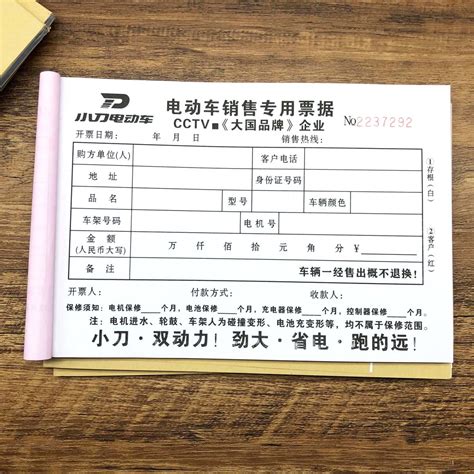 小刀电动车
电动车销售专用票据
CCTV■《大国品牌》企业
No2237292
开票日期： 年 月 日 销售热线：
购方单位(人) 客户电话
地址 身份证号码
品名 型号 车辆颜色
车架号码 电机号
金额(人民币大写) 万 仟 佰 拾 元 角 分 ¥
备注 车辆一经售出概不退换！
①存根(白)
②客户(红)
开票人： 付款方式： 收款人：
保修须知：电机保修____个月，电池保修____个月，充电器保修____个月，控制器保修____个月。
注：电机进水、轮鼓、车架人为碰撞变形、电池充变形等，均不属于保修范围。
小刀·双动力！劲大·省电·跑的远！